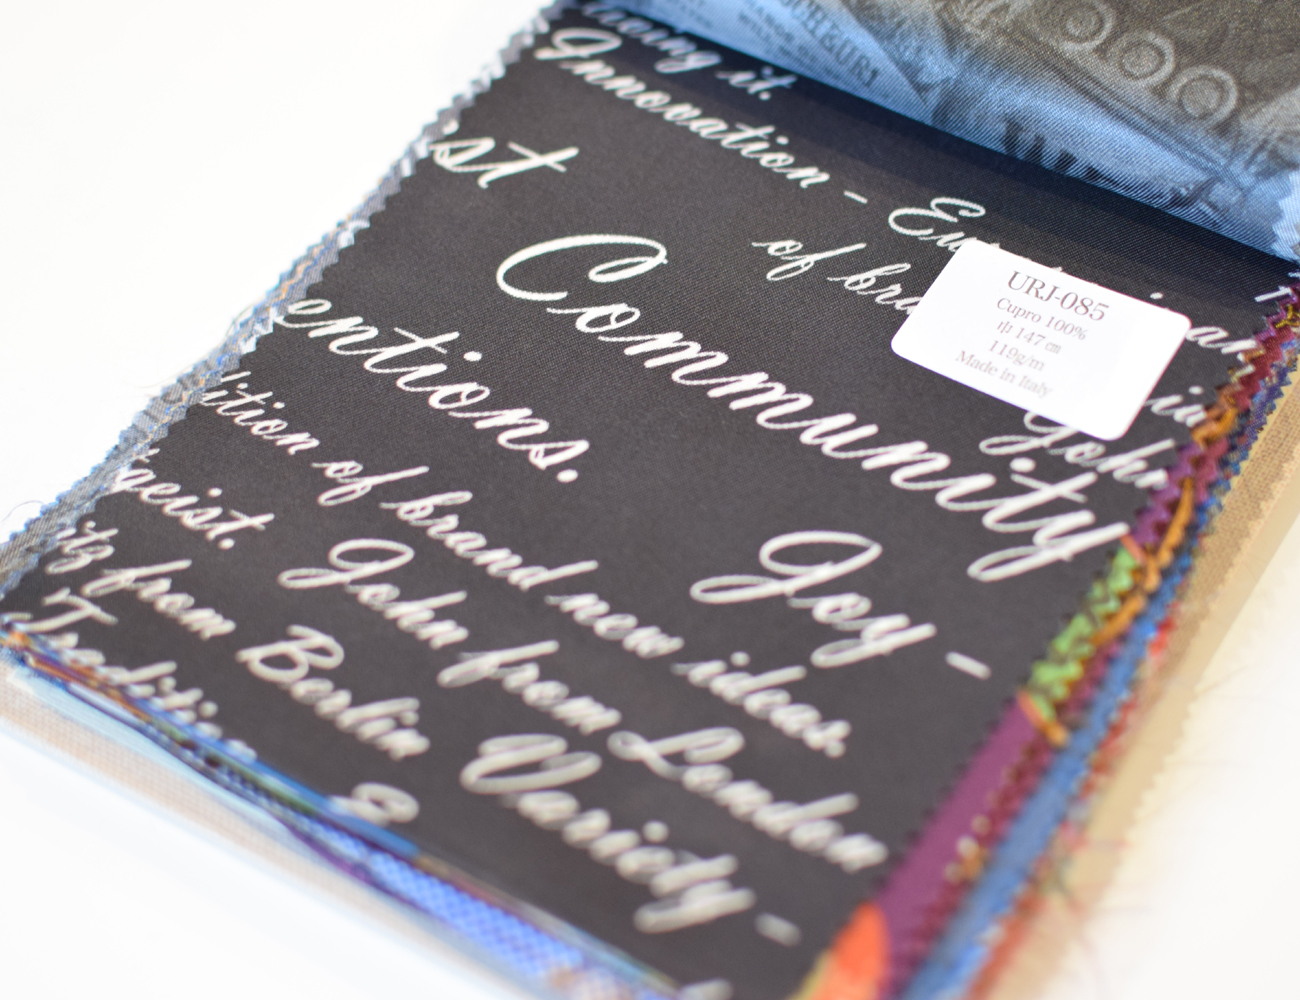 living it.
Innovation -
of
st
Community
entions.
ition of brand new ideas.
geist.
John from London
Joy -
from Berlin
Variety -
Tradition
John
URJ-085
Cupro 100%
巾 147㎝
119g/m
Made in Italy